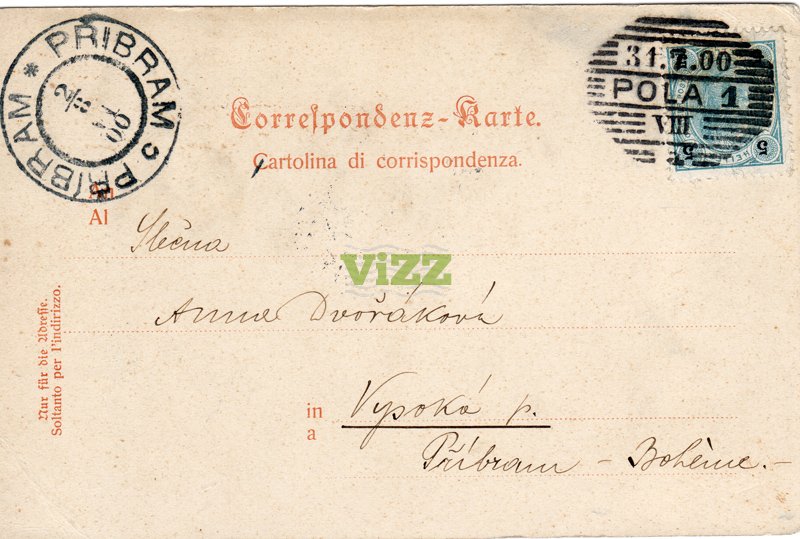 PŘIBRAM * PŘIBRAM
2/8
00
31.7.00
POLA 1
VIII
5 5
Correspondenz-Karte.
Cartolina di corrispondenza.
An
Al
Slečna
ViZZ
Anna Dvořáková
in
a
Vysoká p.
Příbram - Bohème.-
Nur für die Adresse.
Soltanto per l'indirizzo.